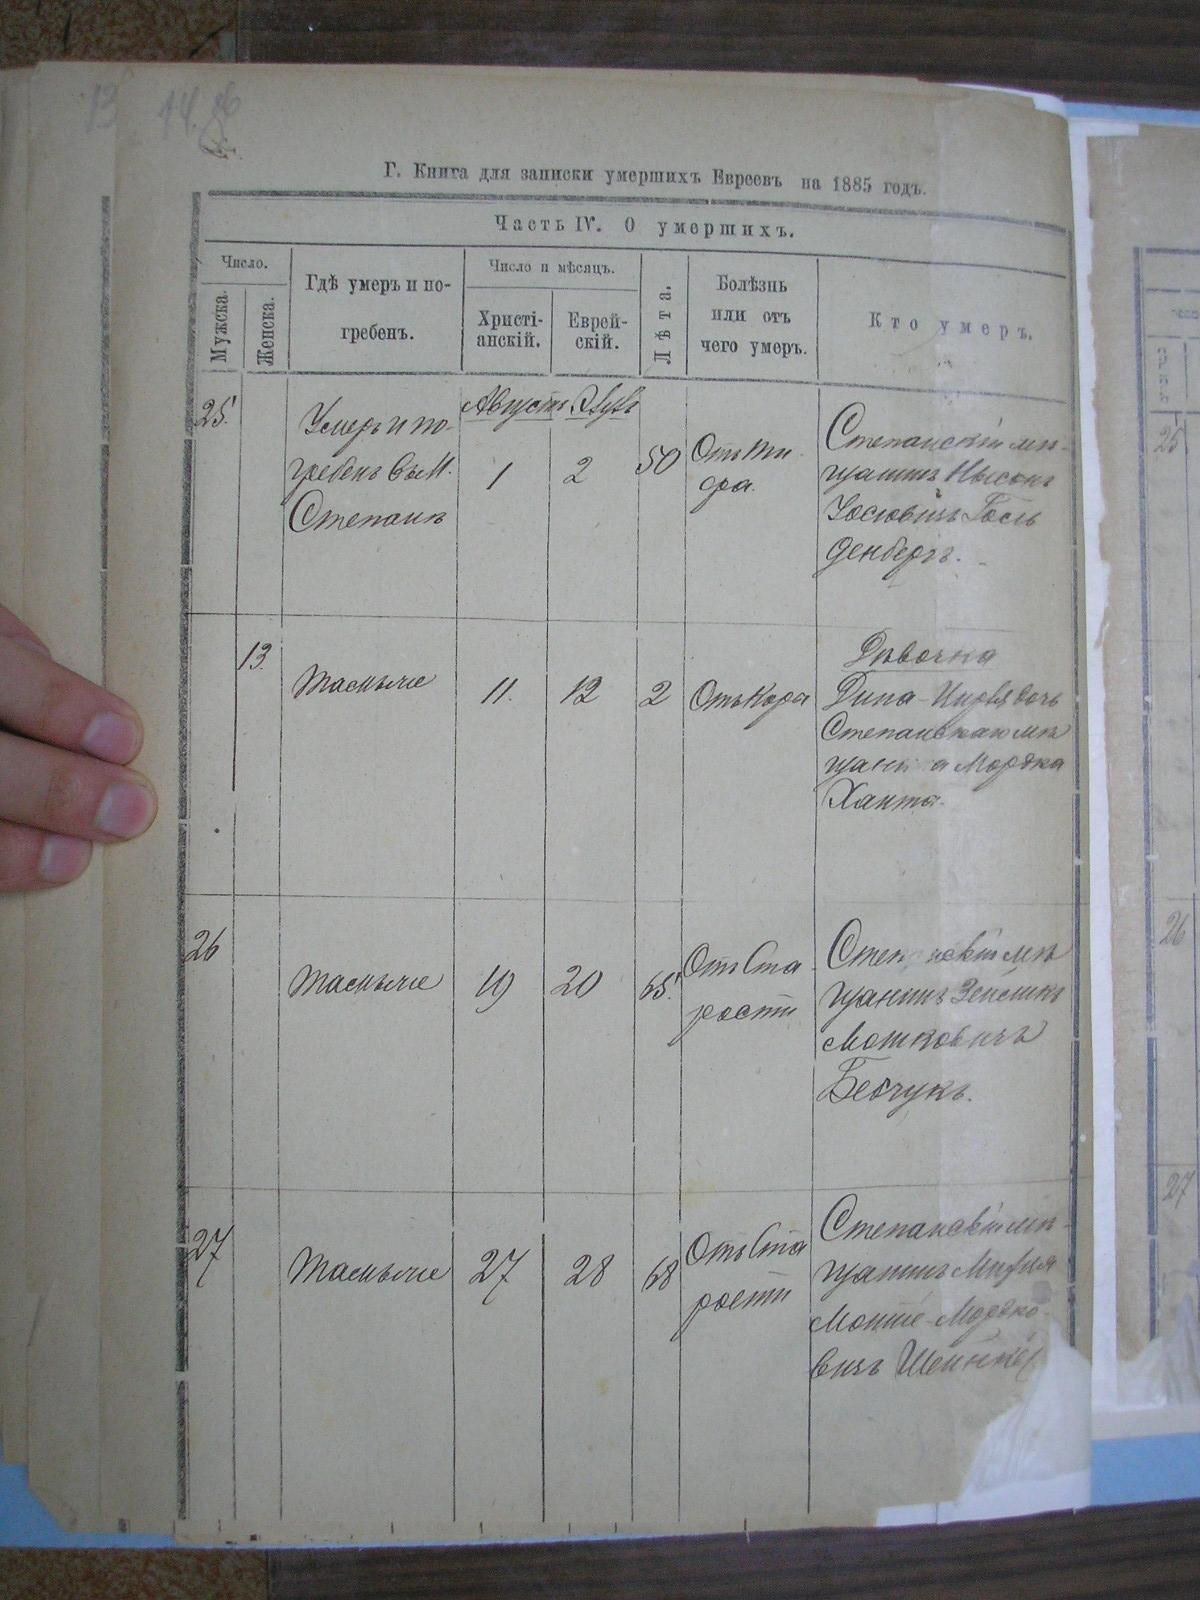 13 14.
Г. Книга для записки умершихъ Евреевъ на 1885 годъ.
Часть IV. О умершихъ.
Число.
Мужска.
Женска.
Гдѣ умеръ и по-
гребенъ.
Число и мѣсяцъ.
Христі-
анскій.
Еврей-
скій.
Лѣта.
Болѣзнь
или отъ
чего умеръ.
Кто умеръ.
25.
Умеръ и по-
гребенъ въ М.
Степани
Августъ
1
2
50
Отъ
Степанскій мѣ-
щанинъ Нысонъ
Голь
денбергъ.
13.
Тамъже
11.
12
2
Отъ Кора
Дѣвочка
дочь
Степанскаго мѣ
щани а Мордка
Ханта.
26
Тамъже
19
20
65.
Отъ Ста
рости
Степ нскій мѣ
щанинъ
Мошковичъ
27
Тамъже
27
28
68
Отъ Ста
рости
Степанскій мѣ-
щанинъ
Мордко-
вичъ
25
26
27